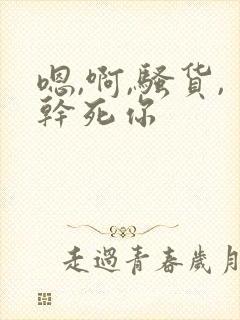 嗯,啊,騷货,
幹死你
走過青春歲月